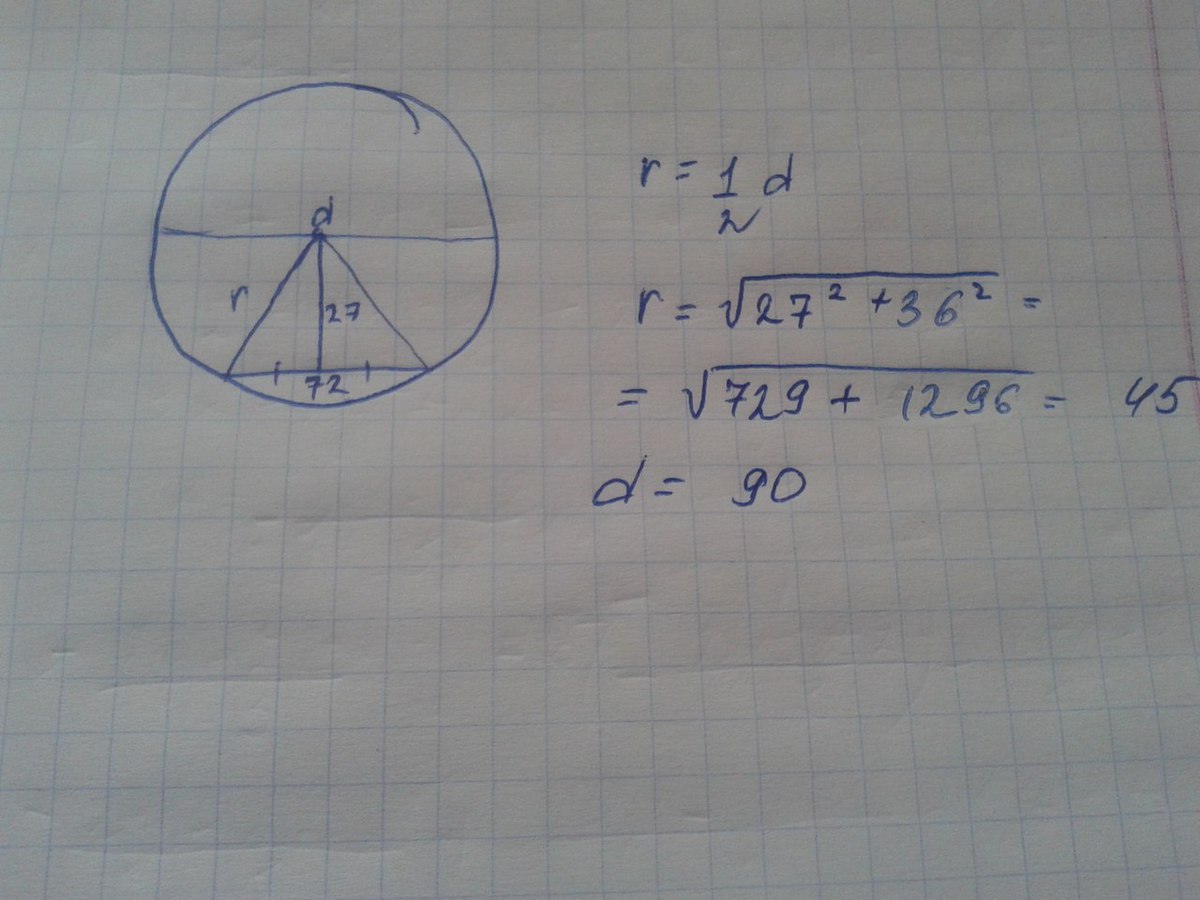 d
r
27
72
r = 1/2 d
r = √27² + 36² =
= √729 + 1296 = 45
d = 90